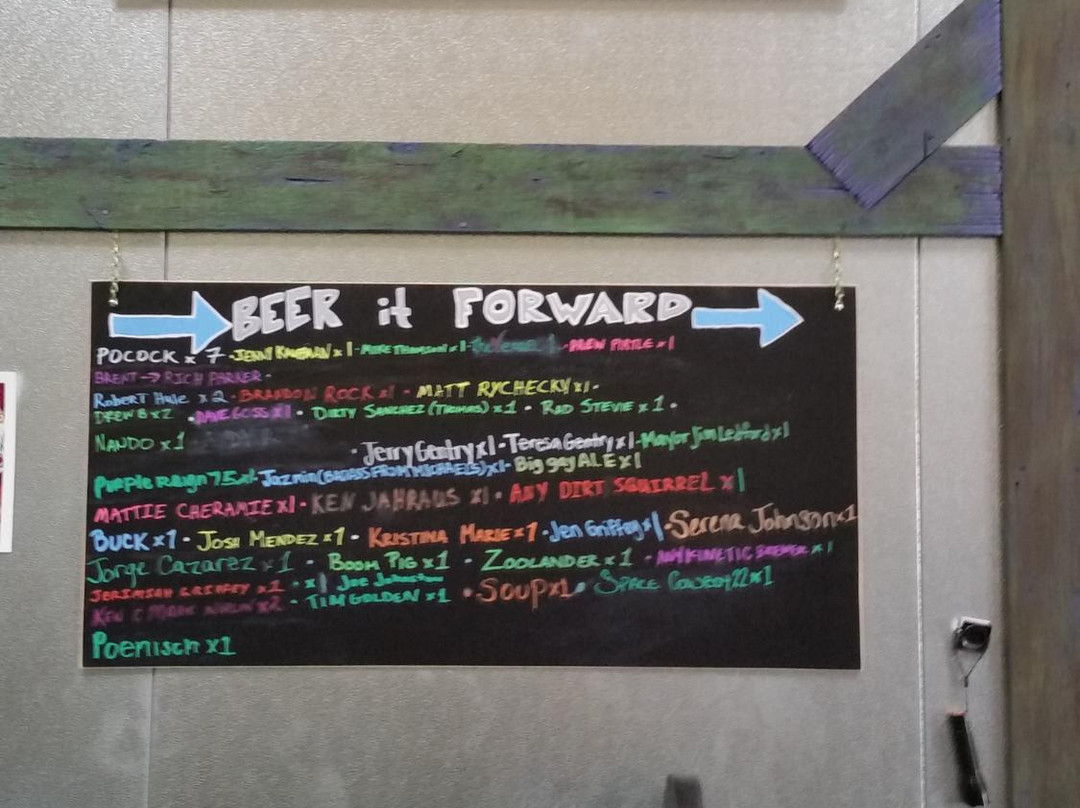 BEER it FORWARD
POCOCK x 7 - JENNY KAUFMAN x 1 - MIKE THOMSON x 1 - 1 - DREW PIRTLE x 1
BRENT → RICH PARKER -
Robert Hale x 2 - BRANDON ROCK x1 - MATT RYCHECKY x1 -
DREW B x 2 • DAVE GOSS x1 • DIRTY SANCHEZ (THOMAS) x 1 • RAD STEVIE x 1 •
NANDO x 1
• Jerry Gentry x1 - Teresa Gentry x1 - Mayor Jim Ledford x1
Purple Raign 75x1 - Jazmin (BADASS FROM MICHAELS) x1 - Big gay ALE x1
MATTIE CHERAMIE x1 • KEN JAHRAUS x1 • ANY DIRT SQUIRREL x 1
BUCK x 1 • JOSH MENDEZ x 1 • KRISTINA MARIE x 1 • Jen Griffey x 1 • Serena Johnson x 1
Jorge Cazarez x 1 • BOOM PIG x 1 • ZOOLANDER x 1 • ANY KINETIC BREWER x 1
JERIMIAH GRIFFEY x 1 • x 1 Joe
KEN & MARK x 2 • TIM GOLDEN x 1 • SOUP x1 • SPACE COWBOY 22 x 1
Poenisch x1